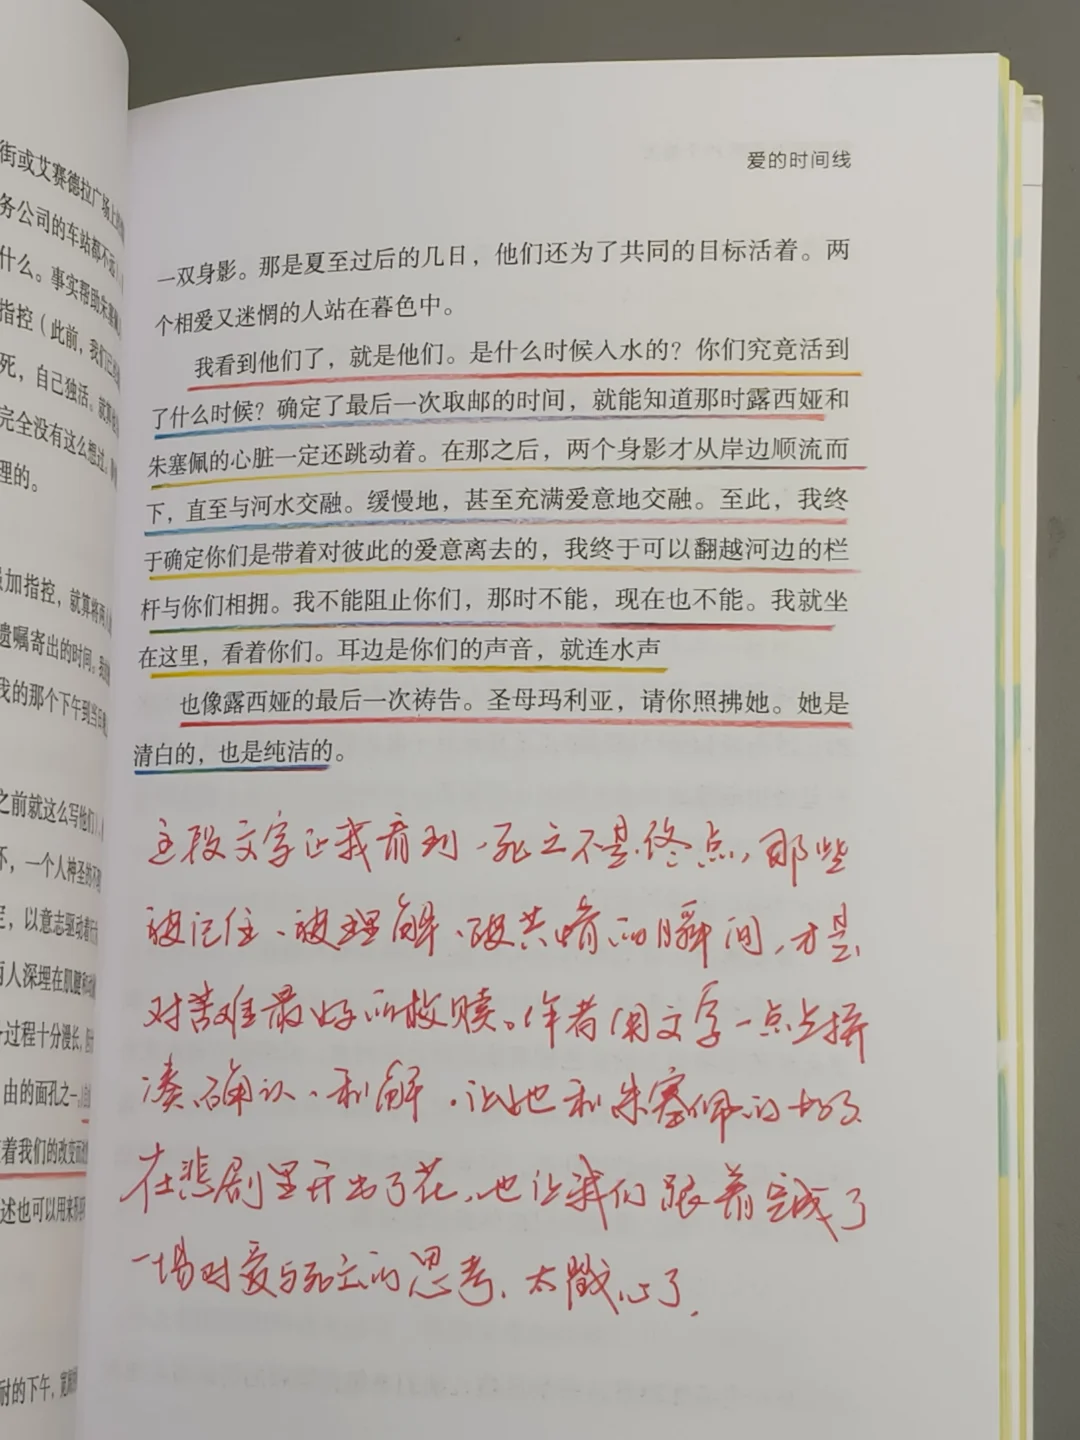 街或艾赛德拉广场上的
务公司的车站都不
什么。事实帮助朱塞佩
指控（此前，我们已
死，自己独活。就算
完全没有这么想过。
理的。
加指控，就算将两人
遗嘱寄出的时间。我
我的那个下午到当日晚
之前就这么写他们
不，一个人神圣的不
定，以意志驱动着行
两人深埋在肌腱和
过程十分漫长，
由的面孔之一。
着我们的改变而
述也可以用来形
耐的下午，宽
爱的时间线
一双身影。那是夏至过后的几日，他们还为了共同的目标活着。两
个相爱又迷惘的人站在暮色中。
我看到他们了，就是他们。是什么时候入水的？你们究竟活到
了什么时候？确定了最后一次取邮的时间，就能知道那时露西娅和
朱塞佩的心脏一定还跳动着。在那之后，两个身影才从岸边顺流而
下，直至与河水交融。缓慢地，甚至充满爱意地交融。至此，我终
于确定你们是带着对彼此的爱意离去的，我终于可以翻越河边的栏
杆与你们相拥。我不能阻止你们，那时不能，现在也不能。我就坐
在这里，看着你们。耳边是你们的声音，就连水声
也像露西娅的最后一次祷告。圣母玛利亚，请你照拂她。她是
清白的，也是纯洁的。
这段文字让我看到，死亡不是终点，那些
被记住、被理解、被共情的瞬间，才是
对苦难最好的救赎。作者用文字一点点拼
凑、确认、和解，让她和朱塞佩的故事
在悲剧里开出了花，也让我们跟着完成了
一场对爱与死亡的思考，太戳心了.